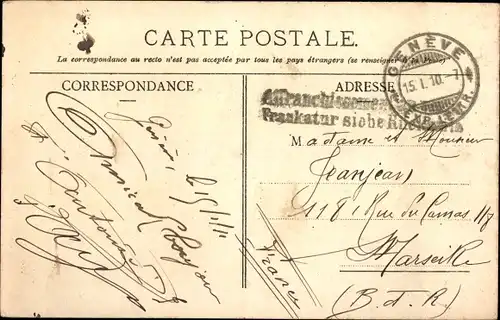 CARTE POSTALE.
La correspondance au recto n'est pas acceptée par tous les pays étrangers (se renseigner à la Poste)
CORRESPONDANCE
ADRESSE
GENÈVE
15.I.10.-7
EXP. LETTR.
Affranchissement
Frankatur siehe Rückseite
Madame et Monsieur
Jeanjean
118, Rue du Camas 118
Marseille
(B. d. R)
France
Genève, 15/1/10
Amical